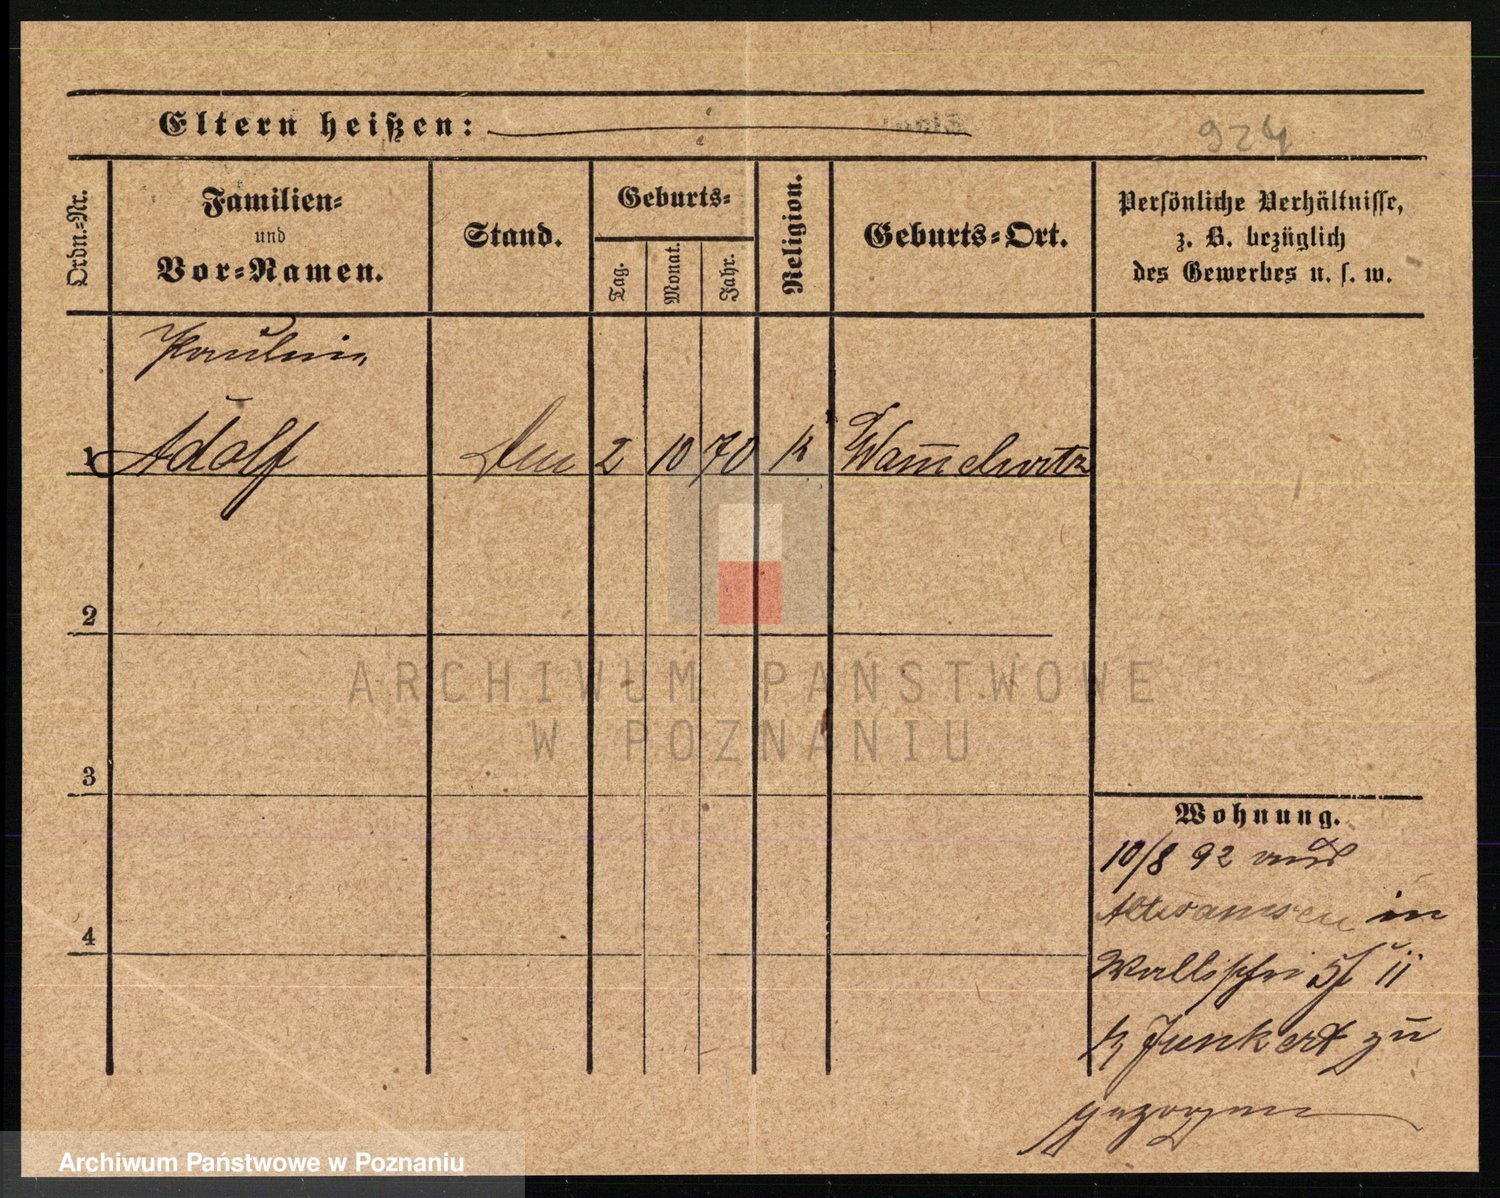 Eltern heißen:
924
Ordn.-Nr.
Familien-
und
Vor-Namen.
Stand.
Geburts-
Tag.
Monat.
Jahr.
Religion.
Geburts-Ort.
Persönliche Verhältnisse,
z. B. bezüglich
des Gewerbes u. s. w.
1 Adolf 2 10 70 k
2
3
4
Wohnung.
10/8 92 aus
in
Wallischei II
Junkert zu
gezogen
ARCHIWUM PAŃSTWOWE
W POZNANIU
Archiwum Państwowe w Poznaniu